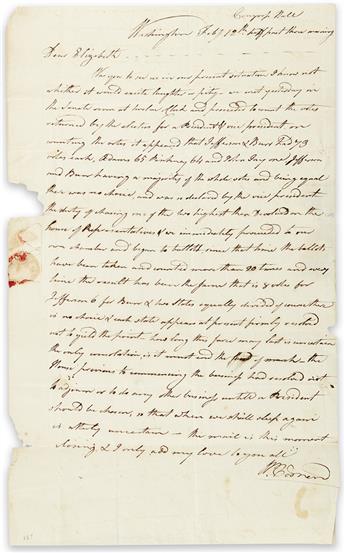 Congress Hall
Washington Feby 12th half past three morning
Dear Elizabeth
Was you to see us in our present situation I know not
whether it would excite laughter or pity. we met yesterday in
the Senate room at twelve Clock and proceeded to count the votes
returned by the electors for a President & vice president, on
counting the votes it appeared that Jefferson & Burr had 73
votes each, Adams 65 Pinckney 64 and John Jay one Jefferson
and Burr having a majority of the whole votes and being equal
there was no choice, and was so declared by the vice president
the duty of choosing one of the two highest then devolved on the
house of Representatives & we immediately proceeded to our
own chamber and began to ballot since that time the ballots
have been taken and counted more than 20 times and every
time the result has been the same that is 8 votes for
Jefferson 6 for Burr & two States equally divided of course there
is no choice & each state appears at present firmly resolved
not to yield the point. how long this farce may last is uncertain
the only consolation is it must end the of march. the
House previous to commencing the business had resolved not
to adjourn or to do any other business untill a President
should be chosen, so that when we shall sleep again
is utterly uncertain — the mail is this moment
closing, & I only add my love to you all